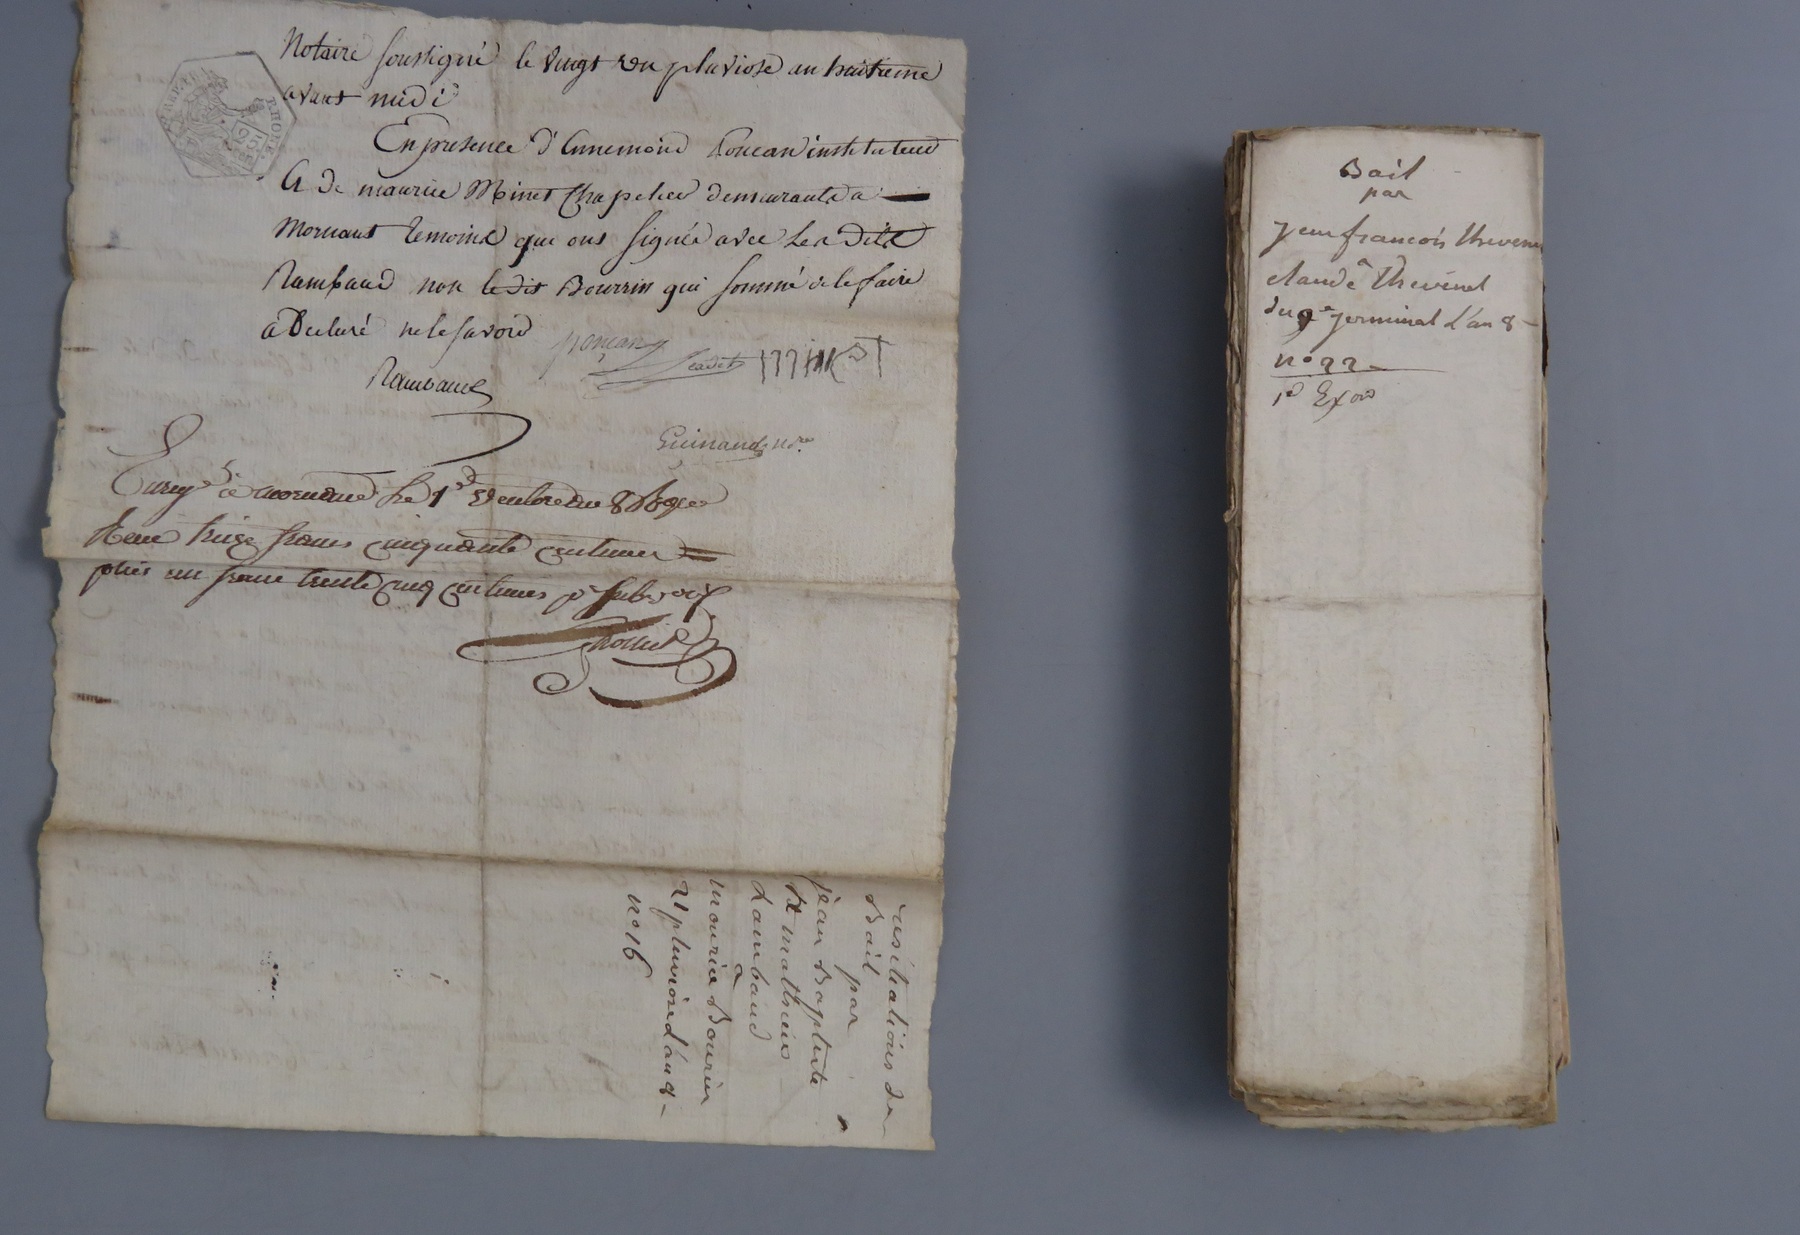 Notaire soussigné le vingt un pluviose an huitieme
avant midi
En presence d'Annemond Poncan instituteur
& de maurice Minet Chapelier demeurants a
Mornant temoins qui ont signé avec les dits
Rambaud non le dit Bourrin qui sommé de le faire
a Declaré ne le savoir
poncan
Rambaud
Guinand nre.
Enregé à mornant le 1er Ventose an 8
treize francs cinquante centimes
plus un franc trente cinq centimes pr subvon
Rollet
REP.
RHONE.
Bail par
jean Baptiste
& mathieu
Rambaud
a
mourice Bourin
21 pluviose l'an 8
no 16
Bail
par
jean francois thevenet
a
claude thevenet
du 9e germinal l'an 8
no 22
1e Expon